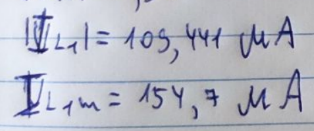 |I_L1| = 109,441 μA
I_L1m = 154,7 μA